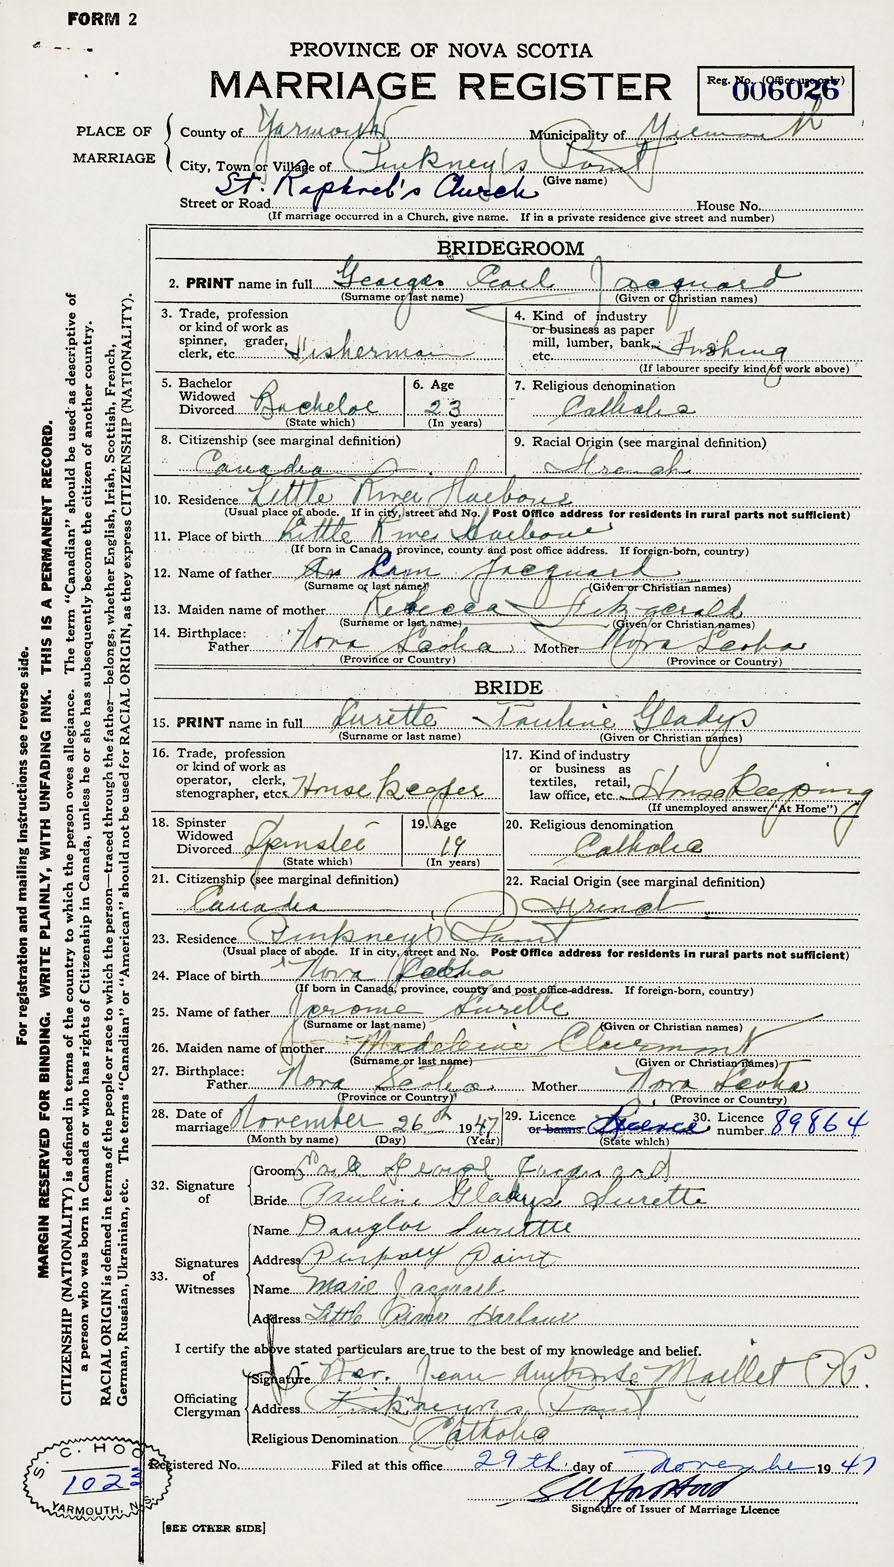 FORM 2
PROVINCE OF NOVA SCOTIA
MARRIAGE REGISTER
Reg. No. (Office use only)
006026
PLACE OF MARRIAGE
County of Yarmouth Municipality of Yarmouth
City, Town or Village of Pinkney's Point
(Give name)
St. Raphael's Church
Street or Road House No.
(If marriage occurred in a Church, give name. If in a private residence give street and number)
BRIDEGROOM
2. PRINT name in full Georges Carl Jacquard
(Surname or last name) (Given or Christian names)
3. Trade, profession or kind of work as spinner, grader, clerk, etc. Fisherman
4. Kind of industry or business as paper mill, lumber, bank, etc. Fishing
(If labourer specify kind of work above)
5. Bachelor Widowed Divorced Bachelor
(State which)
6. Age 23
(In years)
7. Religious denomination Catholic
8. Citizenship (see marginal definition) Canadia
9. Racial Origin (see marginal definition) French
10. Residence Little River Harbour
(Usual place of abode. If in city, street and No. Post Office address for residents in rural parts not sufficient)
11. Place of birth Little River Harbour
(If born in Canada, province, county and post office address. If foreign-born, country)
12. Name of father Jacquard
(Surname or last name) (Given or Christian names)
13. Maiden name of mother Rebecca Fitzgerald
(Surname or last name) (Given or Christian names)
14. Birthplace: Father Nova Scotia Mother Nova Scotia
(Province or Country) (Province or Country)
BRIDE
15. PRINT name in full Surette Pauline Gladys
(Surname or last name) (Given or Christian names)
16. Trade, profession or kind of work as operator, clerk, stenographer, etc. Housekeeper
17. Kind of industry or business as textiles, retail, law office, etc. HouseKeeping
(If unemployed answer "At Home")
18. Spinster Widowed Divorced Spinster
(State which)
19. Age 19
(In years)
20. Religious denomination Catholic
21. Citizenship (see marginal definition) Canadia
22. Racial Origin (see marginal definition) French
23. Residence Pinkney's Point
(Usual place of abode. If in city, street and No. Post Office address for residents in rural parts not sufficient)
24. Place of birth Nova Scotia
(If born in Canada, province, county and post office address. If foreign-born, country)
25. Name of father Jerome Surette
(Surname or last name) (Given or Christian names)
26. Maiden name of mother Madeleine Clairmont
(Surname or last name) (Given or Christian names)
27. Birthplace: Father Nova Scotia Mother Nova Scotia
(Province or Country) (Province or Country)
28. Date of marriage November 26th 1947
(Month by name) (Day) (Year)
29. Licence or banns Licence
(State which)
30. Licence number 89864
32. Signature of
Groom Carl George Jacquard
Bride Pauline Gladys Surette
33. Signatures of Witnesses
Name Douglas Surette
Address Pinkney Point
Name Marie Jacquard
Address Little River Harbour
I certify the above stated particulars are true to the best of my knowledge and belief.
Officiating Clergyman
Signature Rev. Jean Ambroise Maillet P.P.
Address Pinkney's Point
Religious Denomination Catholic
Registered No. Filed at this office 29th day of November 1947
Signature of Issuer of Marriage Licence
[SEE OTHER SIDE]
S. C. HOOD
1023
YARMOUTH, N.S.
For registration and mailing instructions see reverse side.
MARGIN RESERVED FOR BINDING. WRITE PLAINLY, WITH UNFADING INK. THIS IS A PERMANENT RECORD.
CITIZENSHIP (NATIONALITY) is defined in terms of the country to which the person owes allegiance. The term "Canadian" should be used as descriptive of
a person who was born in Canada or who has rights of Citizenship in Canada, unless he or she has subsequently become the citizen of another country.
RACIAL ORIGIN is defined in terms of the people or race to which the person—traced through the father—belongs, whether English, Irish, Scottish, French,
German, Russian, Ukrainian, etc. The terms "Canadian" or "American" should not be used for RACIAL ORIGIN, as they express CITIZENSHIP (NATIONALITY).